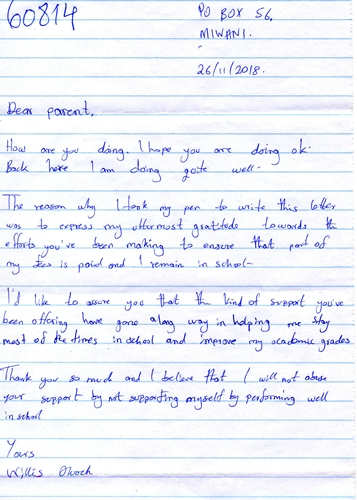 60814
PO BOX 56,
MIWANI.
26/11/2018.
Dear parent,
How are you doing. I hope you are doing ok.
Back here I am doing qoite well.
The reason why I took my pen to write this letter
was to express my uttermost gratitude towards the
efforts you've been making to ensure that part of
my fees is paid and I remain in school.
I'd like to assure you that the kind of support you've
been offering have gone a long way in helping me stay
most of the times in school and improve my academic grades
Thank you so much and I believe that I will not abuse
your support by not supporting myself by performing well
in school
Yours
Willis Okoch